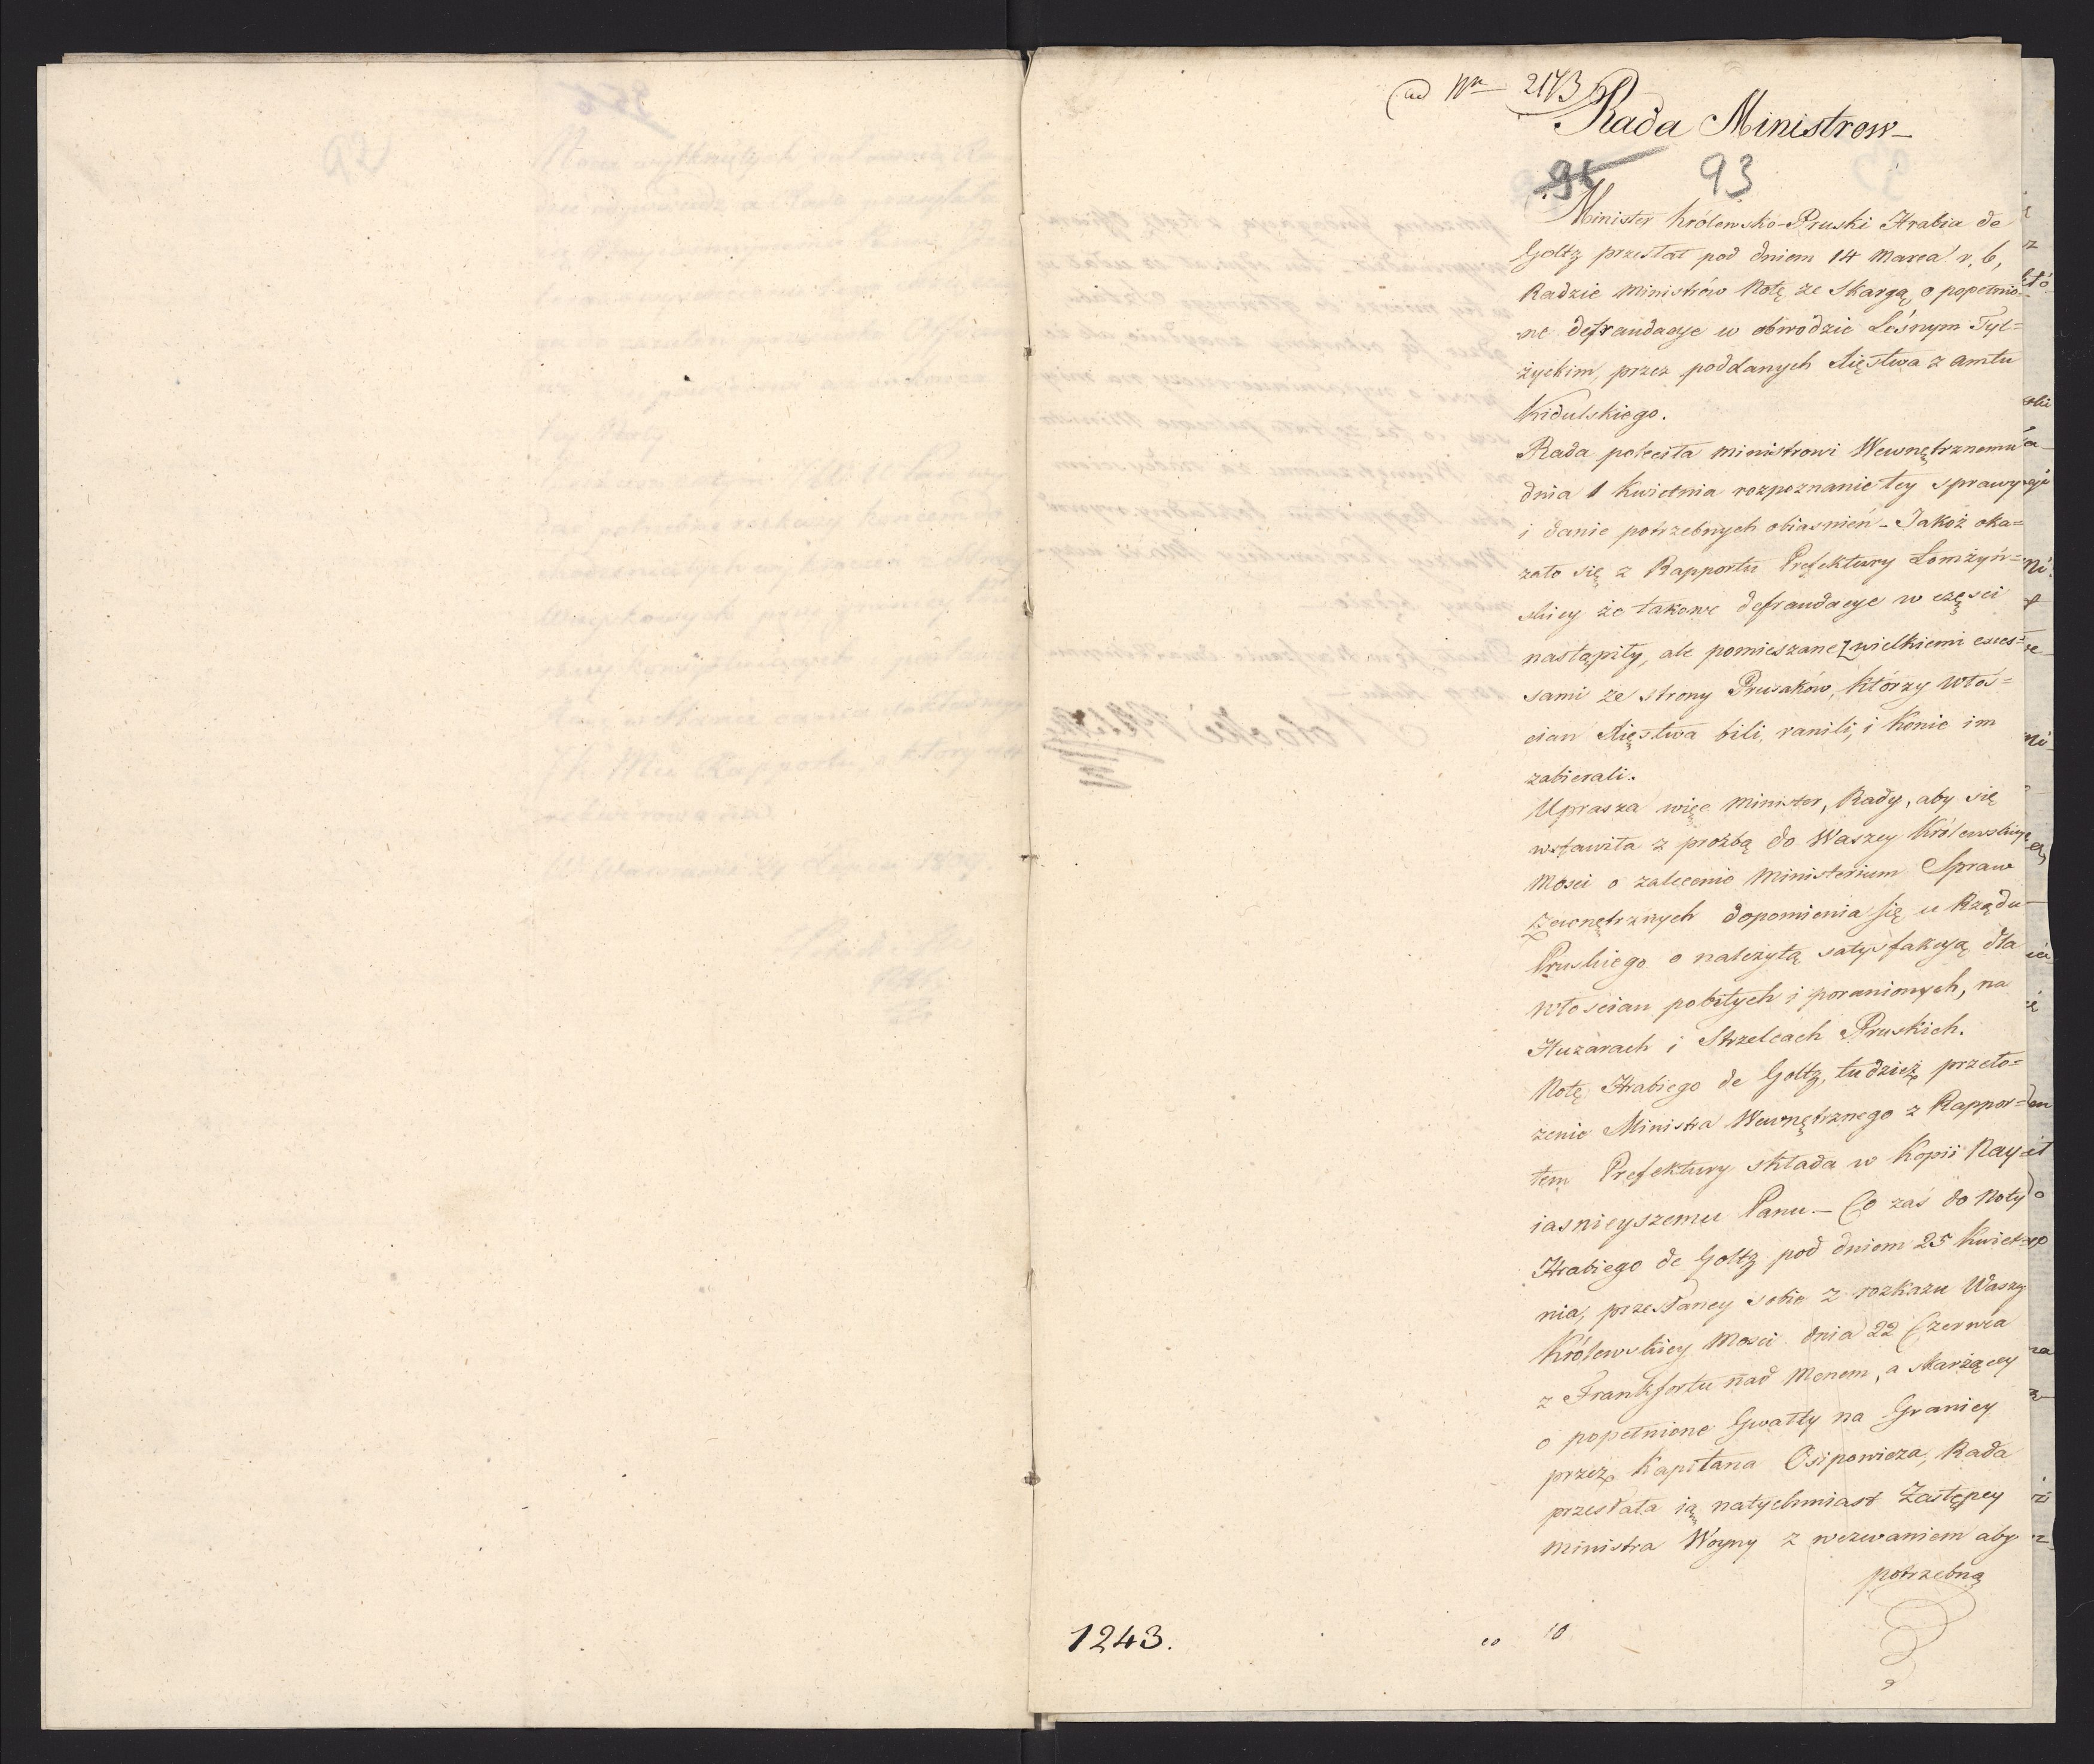 ad Nr 2173
Rada Ministrow
93
Minister Królewsko-Pruski Hrabia de
Goltz przesłał pod dniem 14 Marca r. b,
Radzie Ministrów Notę ze Skargą o popełnio=
ne defraudacye w obwodzie Leśnym Tyl=
życkim, przez poddanych Xięstwa z amtu
Kidulskiego.
Rada poleciła Ministrowi Wewnętrznemu
dnia 1 Kwietnia rozpoznanie tey sprawy
i danie potrzebnych obiasnień - Jakoż oka=
zało się z Rapportu Prefektury Łomżyń=
skiey że takowe defraudacye w częsci
nastąpiły, ale pomieszane z wielkiemi exces=
sami ze strony Prusaków, którzy włos=
cian Xięstwa bili, ranili, i konie im
zabierali.
Uprasza więc Minister, Rady, aby się
wstawiła z prożbą do Waszey Królewskiey
Mosci o zalecenie Ministerium Spraw
Zewnętrznych dopomienia się u Rządu
Pruskiego o należytą satysfakcyą dla
włoscian pobitych i poranionych, na
Huzarach i Strzelcach Pruskich.
Notę Hrabiego de Goltz, tudzież przeło=
żenie Ministra Wewnętrznego z Rappor=
tem Prefektury składa w Kopii Nay
iasnieyszemu Panu. - Co zaś do Noty
Hrabiego de Goltz pod dniem 25 Kwiet=
nia, przesłaney sobie z rozkazu Waszey
Królewskiey Mosci dnia 22 Czerwca
z Frankfortu nad Menem, a skarżącey
o popełnione Gwałty na Granicy
przez Kapitana Osipowicza, Rada
przesłała ią natychmiast Zastępcy
Ministra Woyny z wezwaniem aby
potrzebną
1243.
10